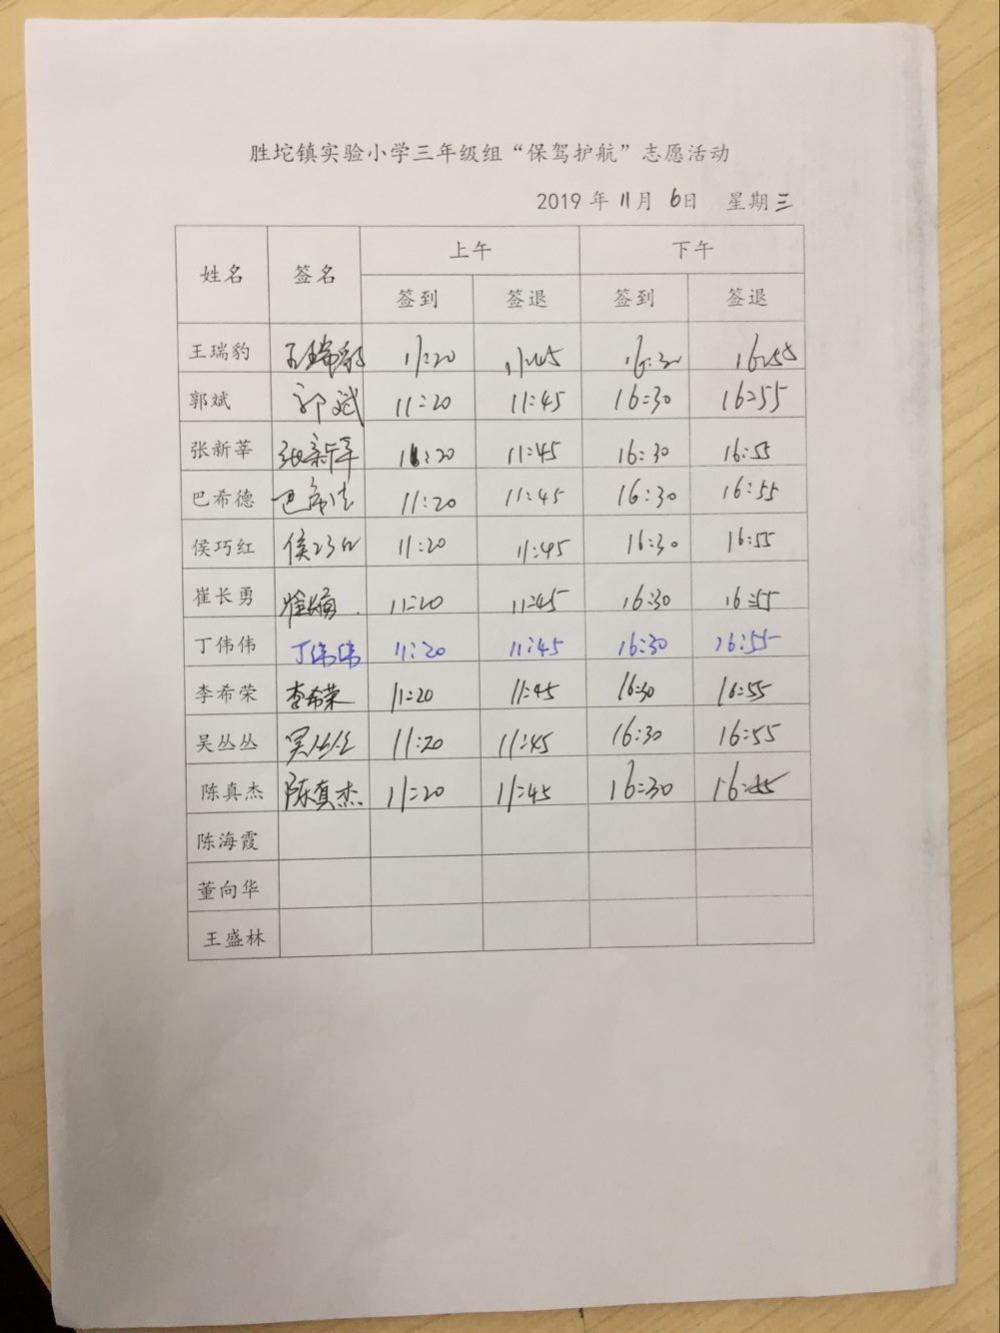 胜坨镇实验小学三年级组“保驾护航”志愿活动
2019 年 11月 6日 星期三
姓名 签名 上午 下午
签到 签退 签到 签退
王瑞豹 王瑞豹 11:20 11:45 16:30 16:55
郭斌 郭斌 11:20 11:45 16:30 16:55
张新莘 张新莘 11:20 11:45 16:30 16:55
巴希德 巴希德 11:20 11:45 16:30 16:55
侯巧红 侯巧红 11:20 11:45 16:30 16:55
崔长勇 崔长勇 11:20 11:45 16:30 16:55
丁伟伟 丁伟伟 11:20 11:45 16:30 16:55
李希荣 李希荣 11:20 11:45 16:30 16:55
吴丛丛 吴丛丛 11:20 11:45 16:30 16:55
陈真杰 陈真杰 11:20 11:45 16:30 16:55
陈海霞
董向华
王盛林